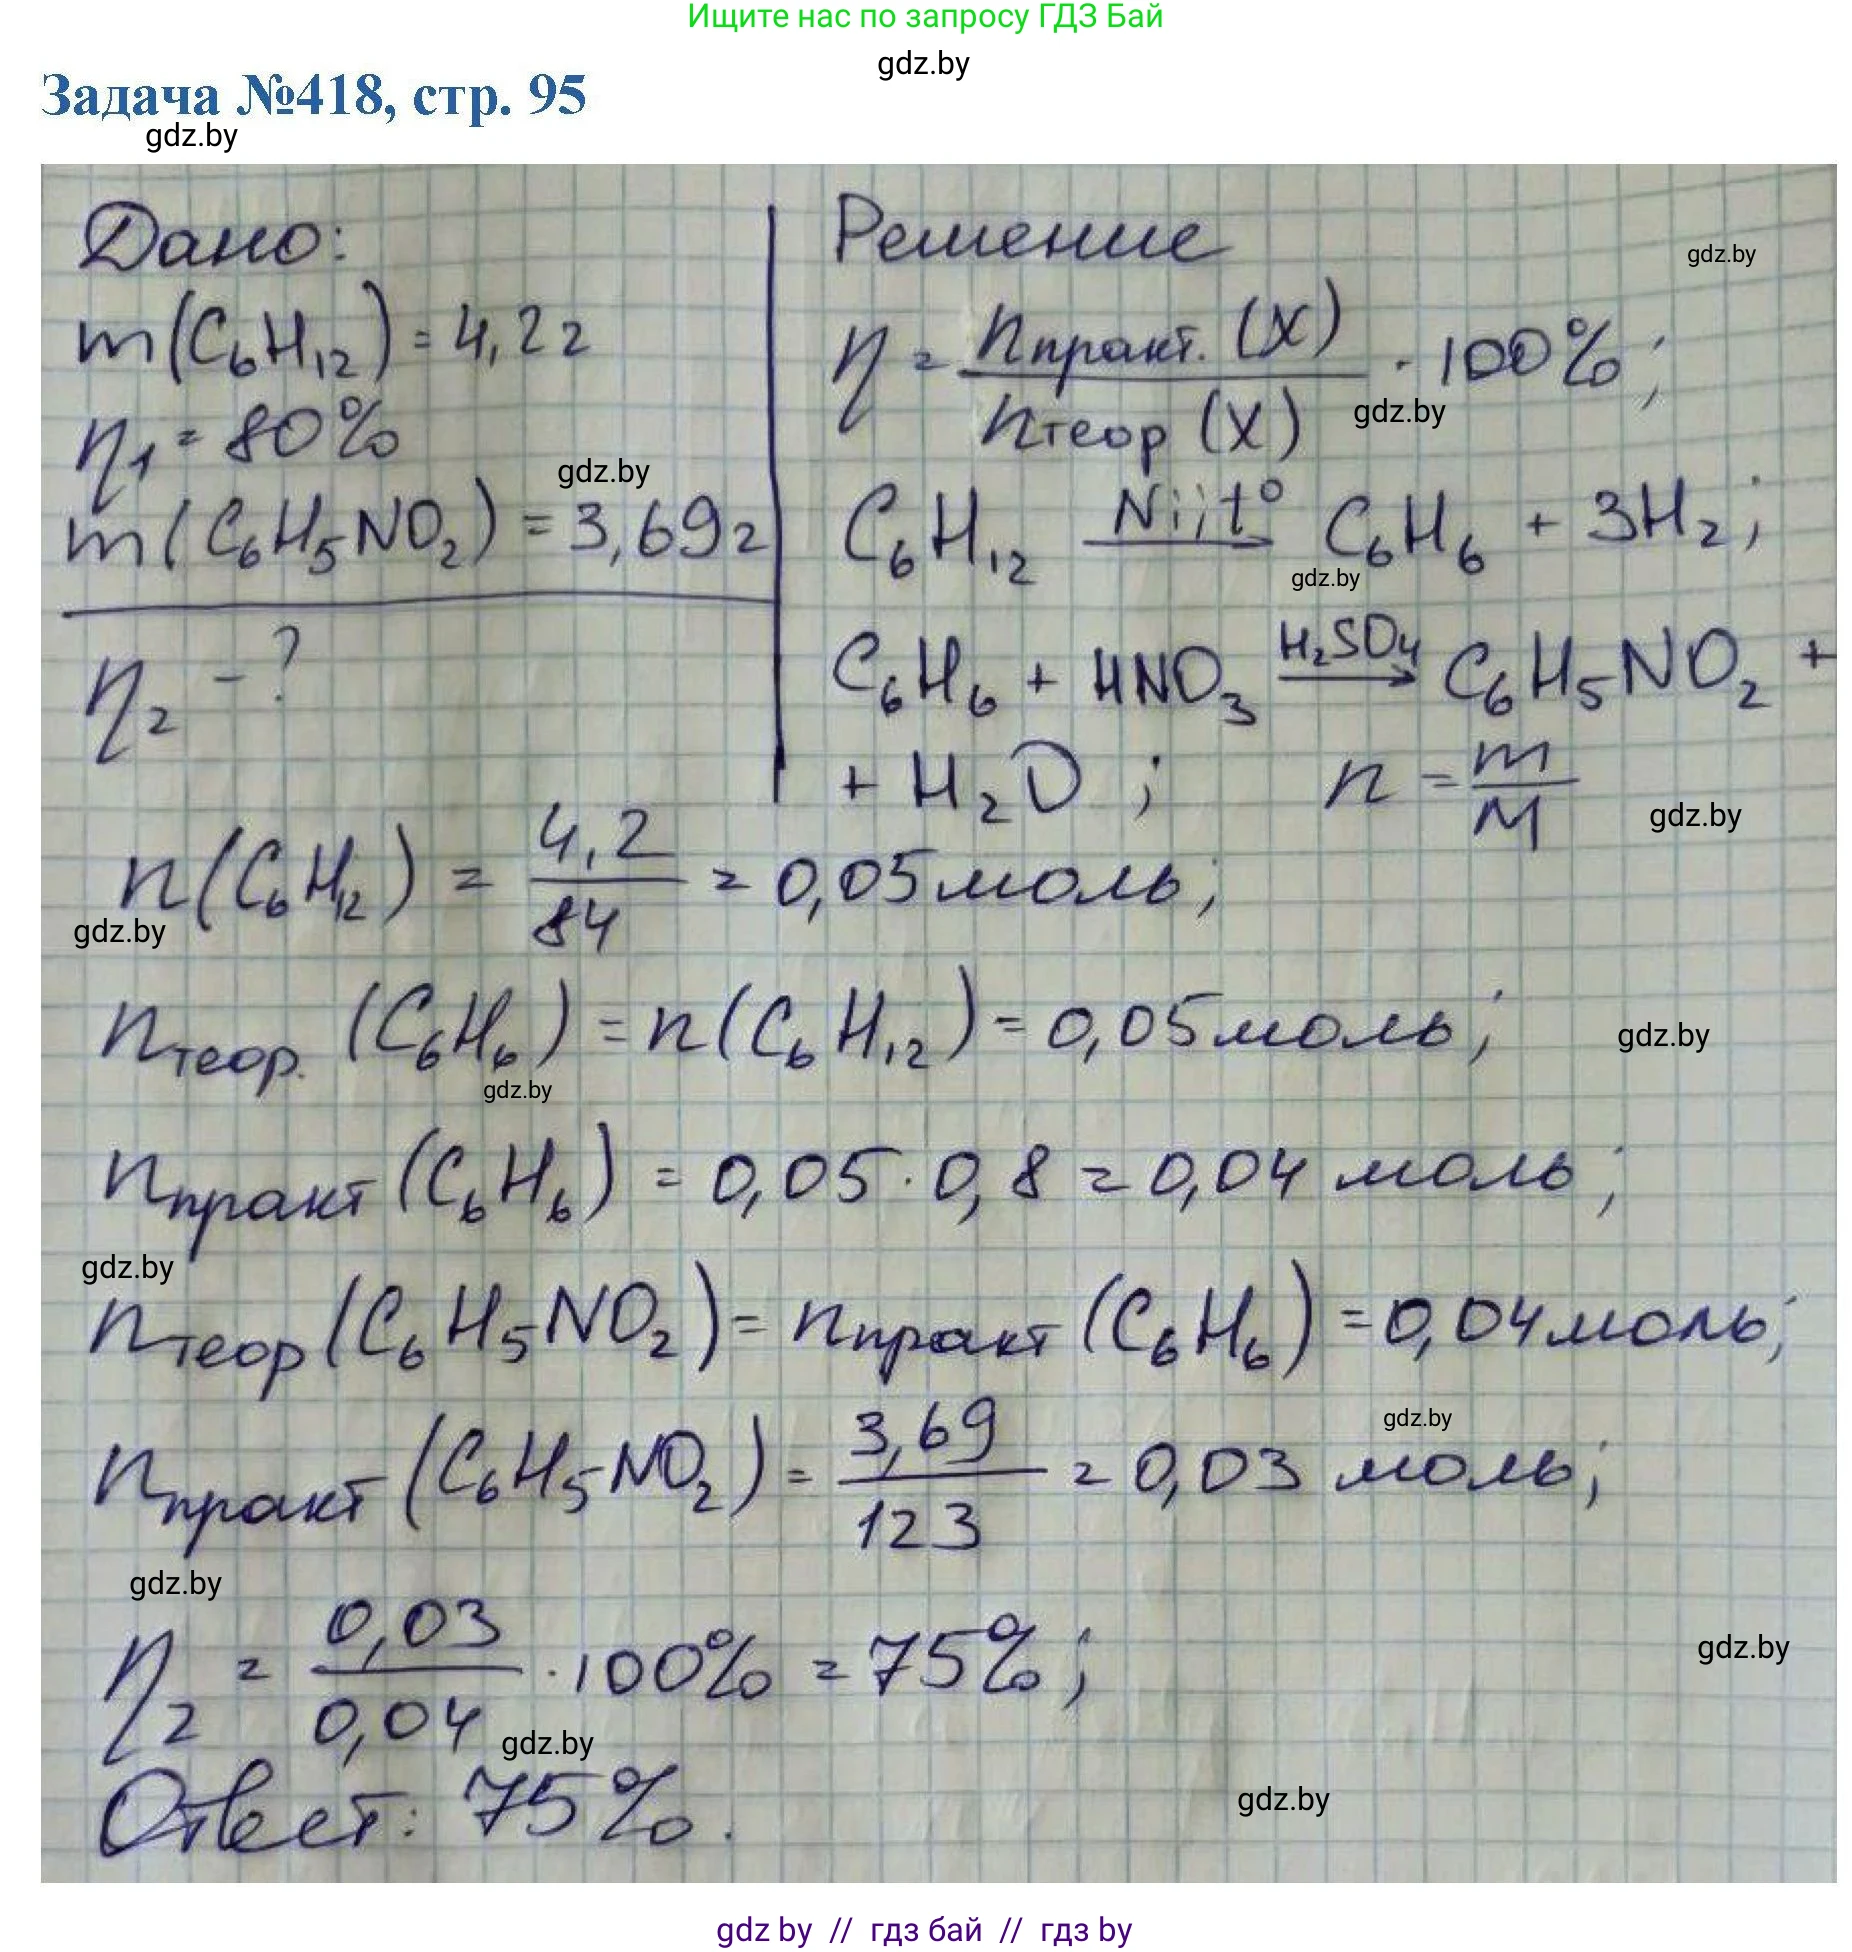 Ищите нас по запросу ГДЗ Бай
gdz.by
Задача №418, стр. 95
gdz.by
Дано:
m(C₆H₁₂) = 4,2г
η₁ = 80%
gdz.by
m(C₆H₅NO₂) = 3,69г
η₂ - ?
Решение
gdz.by
η = nпракт.(X) / nтеор(X) · 100%;
gdz.by
C₆H₁₂ Ni; t° → C₆H₆ + 3H₂;
gdz.by
C₆H₆ + HNO₃ H₂SO₄ → C₆H₅NO₂ +
+ H₂O ; n = m/M
gdz.by
n(C₆H₁₂) = 4,2/84 = 0,05 моль;
gdz.by
nтеор.(C₆H₆) = n(C₆H₁₂) = 0,05 моль;
gdz.by
gdz.by
nпракт(C₆H₆) = 0,05 · 0,8 = 0,04 моль;
gdz.by
nтеор(C₆H₅NO₂) = nпракт(C₆H₆) = 0,04 моль;
gdz.by
nпракт(C₆H₅NO₂) = 3,69/123 = 0,03 моль;
gdz.by
η₂ = 0,03/0,04 · 100% = 75%;
gdz.by
gdz.by
Ответ: 75%.
gdz.by
gdz by // гдз бай // гдз by